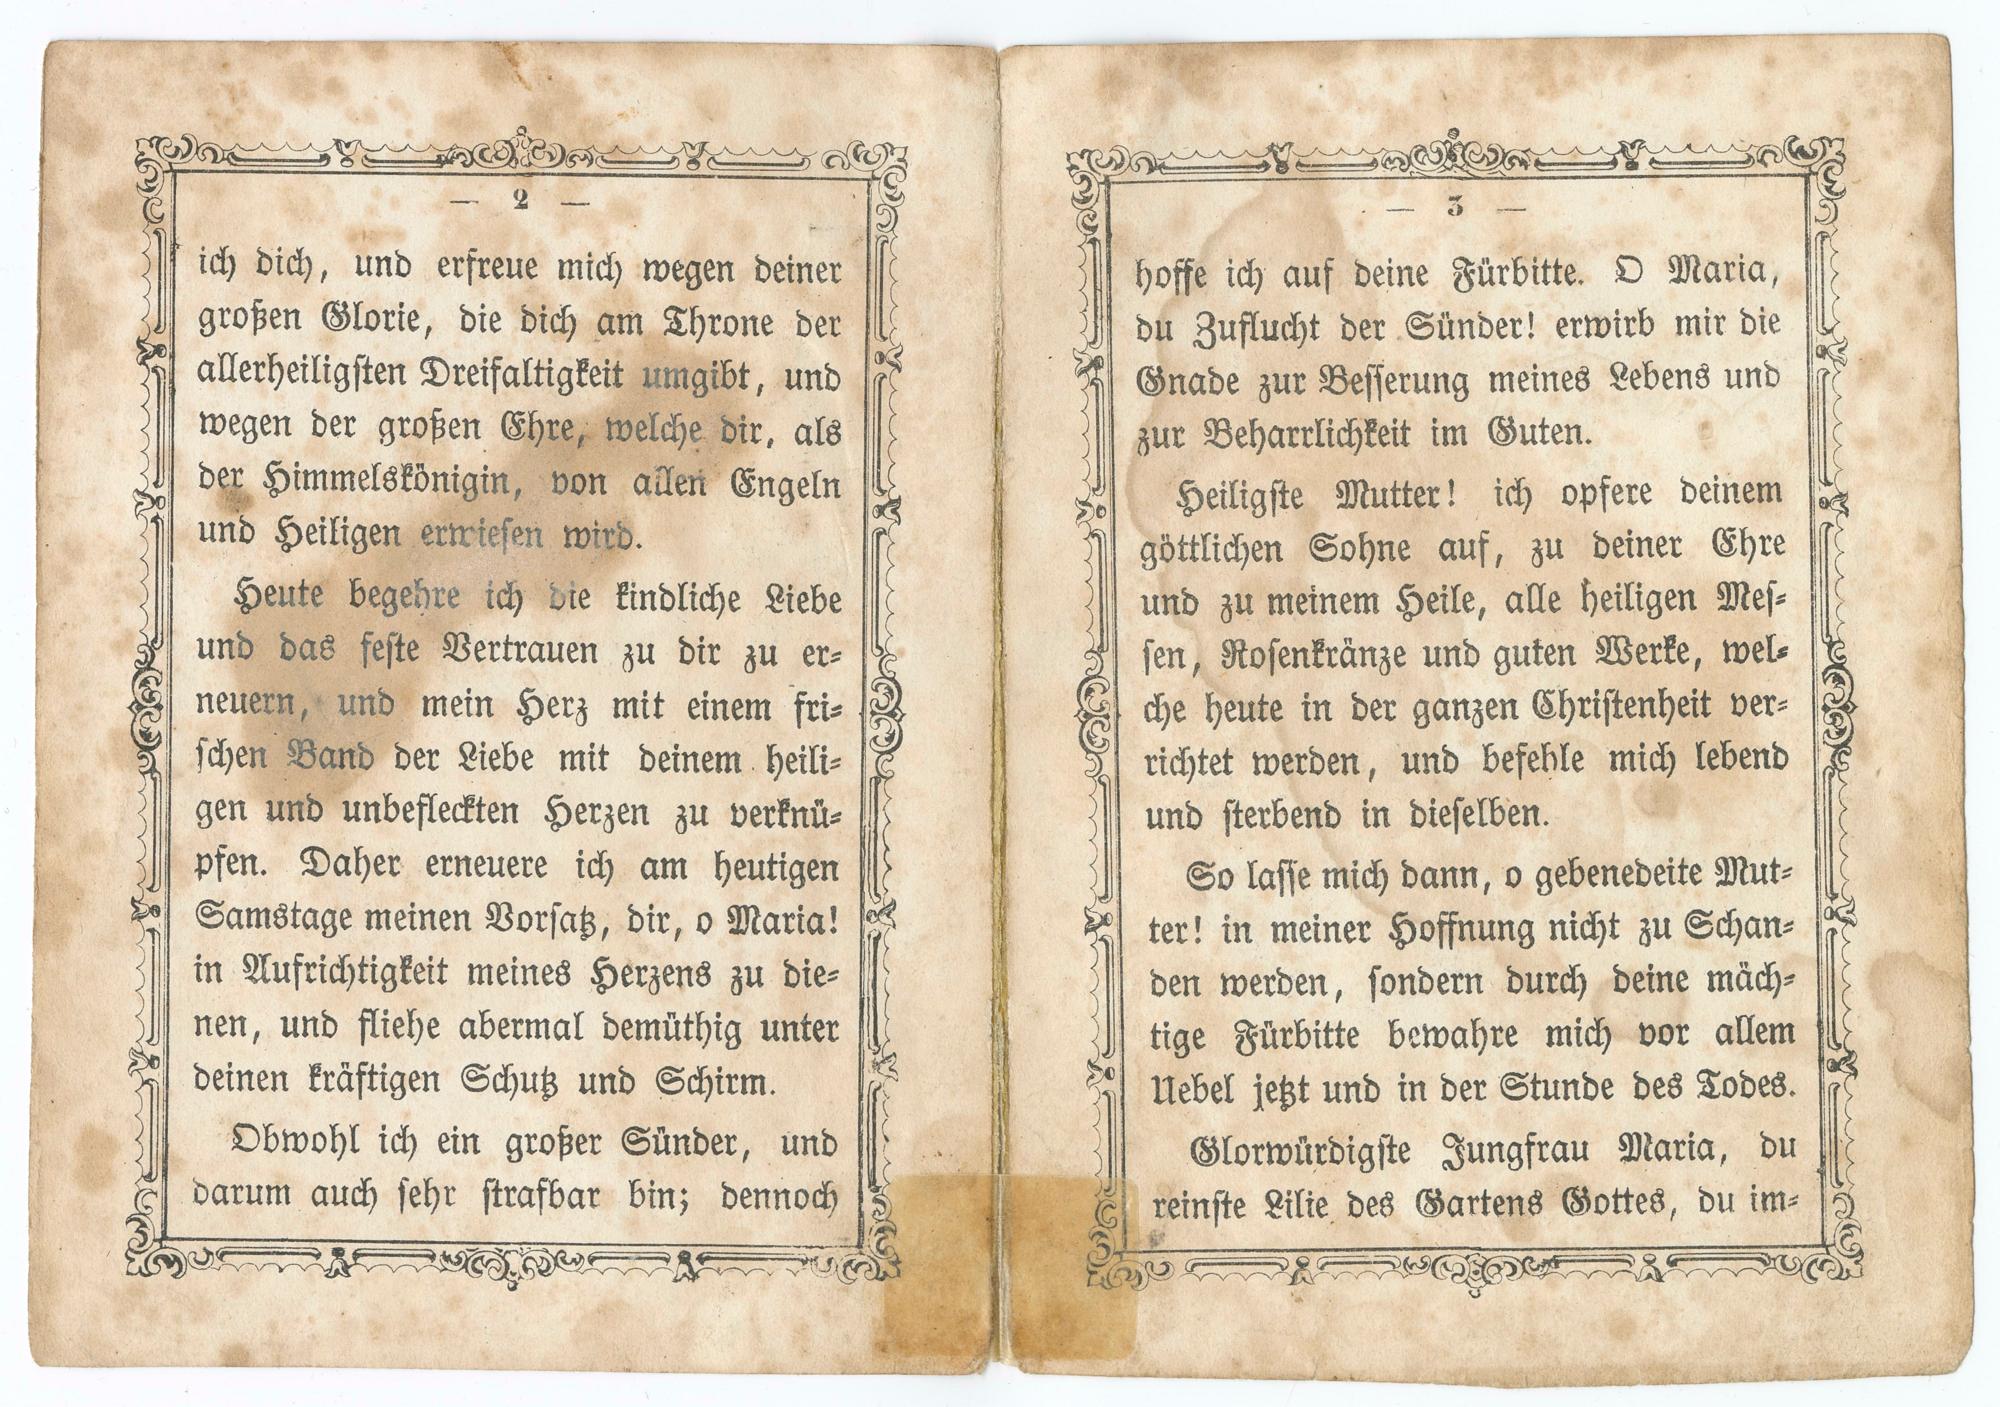 — 2 —
ich dich, und erfreue mich wegen deiner
großen Glorie, die dich am Throne der
allerheiligsten Dreifaltigkeit umgibt, und
wegen der großen Ehre, welche dir, als
der Himmelskönigin, von allen Engeln
und Heiligen erwiesen wird.
Heute begehre ich die kindliche Liebe
und das feste Vertrauen zu dir zu er-
neuern, und mein Herz mit einem fri-
schen Band der Liebe mit deinem heili-
gen und unbefleckten Herzen zu verknü-
pfen. Daher erneuere ich am heutigen
Samstage meinen Vorsatz, dir, o Maria!
in Aufrichtigkeit meines Herzens zu die-
nen, und fliehe abermal demüthig unter
deinen kräftigen Schutz und Schirm.
Obwohl ich ein großer Sünder, und
darum auch sehr strafbar bin; dennoch
— 3 —
hoffe ich auf deine Fürbitte. O Maria,
du Zuflucht der Sünder! erwirb mir die
Gnade zur Besserung meines Lebens und
zur Beharrlichkeit im Guten.
Heiligste Mutter! ich opfere deinem
göttlichen Sohne auf, zu deiner Ehre
und zu meinem Heile, alle heiligen Mes-
sen, Rosenkränze und guten Werke, wel-
che heute in der ganzen Christenheit ver-
richtet werden, und befehle mich lebend
und sterbend in dieselben.
So lasse mich dann, o gebenedeite Mut-
ter! in meiner Hoffnung nicht zu Schan-
den werden, sondern durch deine mäch-
tige Fürbitte bewahre mich vor allem
Uebel jetzt und in der Stunde des Todes.
Glorwürdigste Jungfrau Maria, du
reinste Lilie des Gartens Gottes, du im-